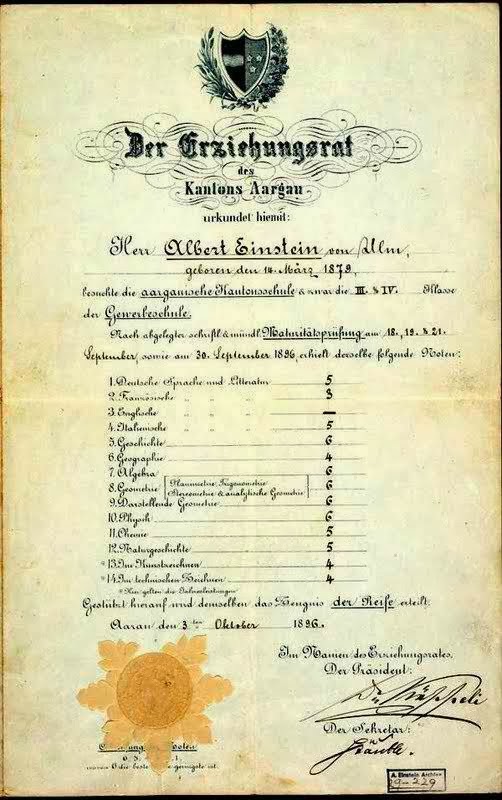 Der Erziehungsrat
des
Kantons Aargau
urkundet hiemit:
Herr Albert Einstein von Ulm,
geboren den 14. März 1879,
besuchte die aargauische Kantonsschule & zwar die III. & IV. Klasse
der Gewerbeschule.
Nach abgelegter schriftl. & mündl. Maturitätsprüfung am 18., 19. & 21.
September, sowie am 30. September 1896, erhielt derselbe folgende Noten:
1. Deutsche Sprache und Litteratur 5
2. Französische " " " 3
3. Englische " " " —
4. Italienische " " " 5
5. Geschichte 6
6. Geographie 4
7. Algebra 6
8. Geometrie Planimetrie, Trigonometrie 6
Stereometrie & analytische Geometrie
9. Darstellende Geometrie 6
10. Physik 6
11. Chemie 5
12. Naturgeschichte 5
*13. Im Kunstzeichnen 4
*14. Im technischen Zeichnen 4
* Hier gelten die Jahresleistungen
Gestützt hierauf wird demselben das Zeugnis der Reife erteilt.
Aarau den 3ten Oktober 1896.
Im Namen des Erziehungsrates,
Der Präsident:
Der Sekretär:
Noten
6. 5. 1.
6 die beste geringste ist.
A. Einstein Archive
29-229